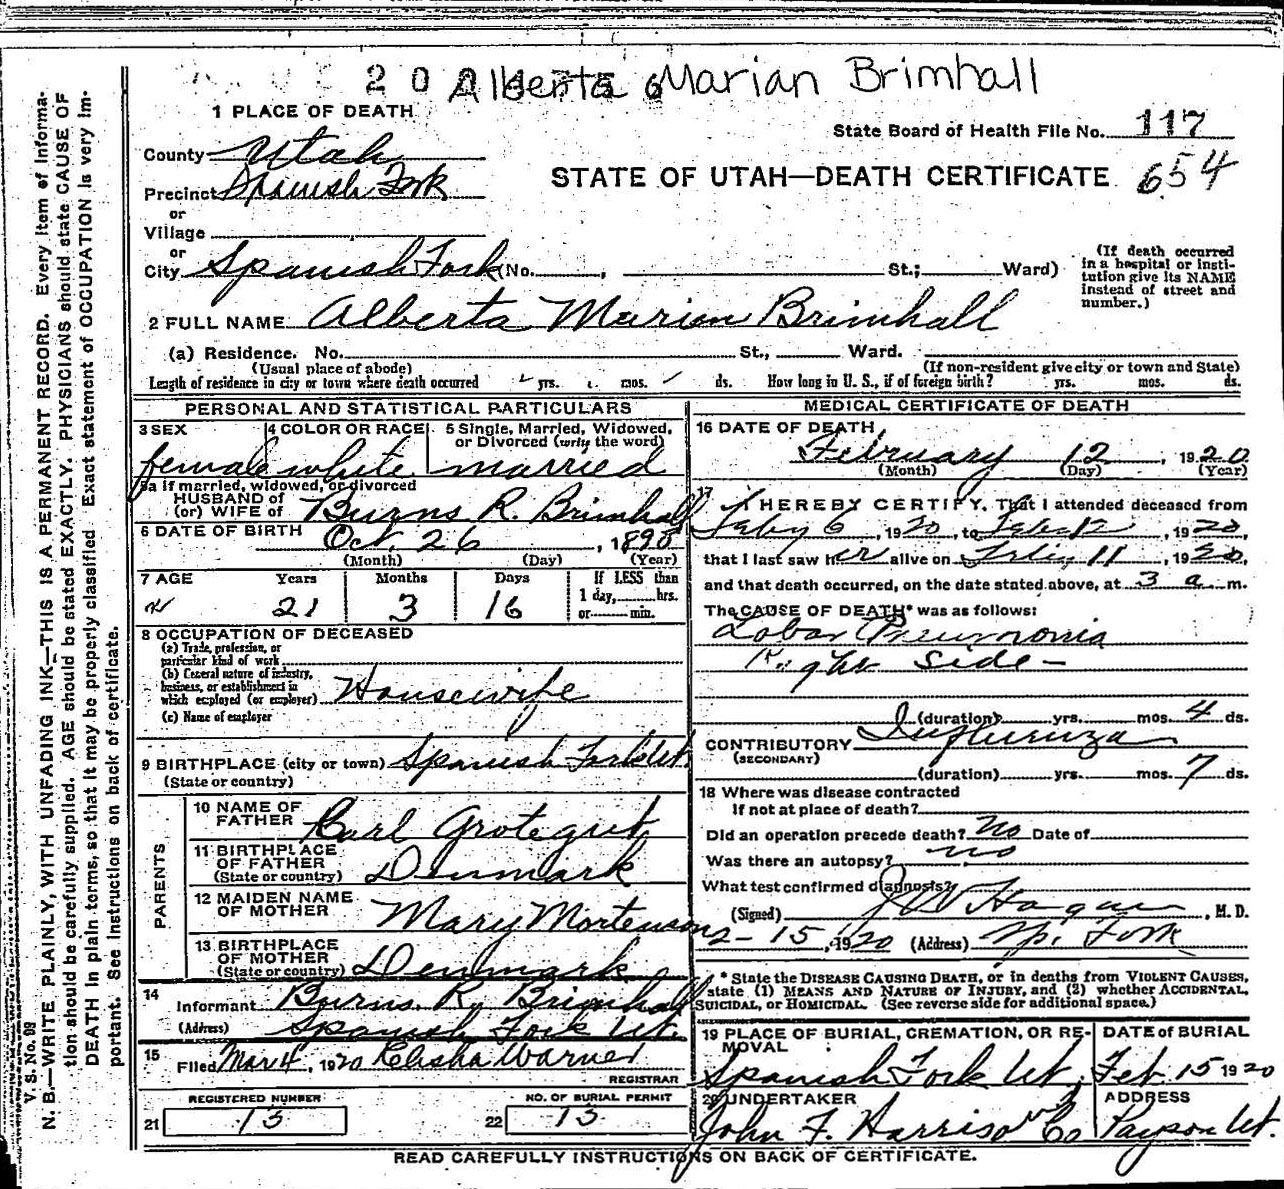 Alberta Marian Brimhall
1 PLACE OF DEATH
State Board of Health File No. 117
County Utah
STATE OF UTAH—DEATH CERTIFICATE 654
Precinct Spanish Fork
or
Village
or
City Spanish Fork (No. , St.; Ward)
(If death occurred in a hospital or institution give its NAME instead of street and number.)
2 FULL NAME Alberta Marion Brimhall
(a) Residence. No. St., Ward.
(Usual place of abode) (If non-resident give city or town and State)
Length of residence in city or town where death occurred yrs. mos. ds. How long in U. S., if of foreign birth? yrs. mos. ds.
PERSONAL AND STATISTICAL PARTICULARS
3 SEX 4 COLOR OR RACE 5 Single, Married, Widowed,
or Divorced (write the word)
female white married
5a If married, widowed, or divorced
HUSBAND of
(or) WIFE of Burns R. Brimhall
6 DATE OF BIRTH Oct. 26, 1898
(Month) (Day) (Year)
7 AGE Years Months Days If LESS than
1 day, hrs.
or min.
21 3 16
8 OCCUPATION OF DECEASED
(a) Trade, profession, or
particular kind of work
(b) General nature of industry,
business, or establishment in
which employed (or employer) Housewife
(c) Name of employer
9 BIRTHPLACE (city or town) Spanish Fork Ut.
(State or country)
PARENTS
10 NAME OF
FATHER Carl Grotegut
11 BIRTHPLACE
OF FATHER
(State or country) Denmark
12 MAIDEN NAME
OF MOTHER Mary Mortenson
13 BIRTHPLACE
OF MOTHER
(State or country) Denmark
14
Informant Burns R. Brimhall
(Address) Spanish Fork Ut.
15
Filed Mar 4, 1920 Elisha Warner
REGISTRAR
REGISTERED NUMBER NO. OF BURIAL PERMIT
21 13 22 13
MEDICAL CERTIFICATE OF DEATH
16 DATE OF DEATH
February 12, 1920
(Month) (Day) (Year)
17 I HEREBY CERTIFY, That I attended deceased from
Feby 6, 1920, to Feb 12, 1920,
that I last saw her alive on Feby 11, 1920,
and that death occurred, on the date stated above, at 3 a m.
The CAUSE OF DEATH* was as follows:
Lobar Pneumonia
Right Side –
(duration) yrs. mos. 4 ds.
CONTRIBUTORY Influenza
(SECONDARY)
(duration) yrs. mos. 7 ds.
18 Where was disease contracted
If not at place of death?
Did an operation precede death? No Date of
Was there an autopsy? no
What test confirmed diagnosis?
(Signed) J W Hagan, M. D.
2-15, 1920 (Address) Sp. Fork
* State the DISEASE CAUSING DEATH, or in deaths from VIOLENT CAUSES,
state (1) MEANS AND NATURE OF INJURY, and (2) whether ACCIDENTAL,
SUICIDAL, or HOMICIDAL. (See reverse side for additional space.)
19 PLACE OF BURIAL, CREMATION, OR REMOVAL DATE of BURIAL
Spanish Fork Ut. Feb 15 1920
20 UNDERTAKER ADDRESS
John F. Harrison Co Payson Ut.
READ CAREFULLY INSTRUCTIONS ON BACK OF CERTIFICATE.
V. S. No. 69
N. B.—WRITE PLAINLY, WITH UNFADING INK—THIS IS A PERMANENT RECORD. Every item of informa-
tion should be carefully supplied. AGE should be stated EXACTLY. PHYSICIANS should state CAUSE OF
DEATH in plain terms, so that it may be properly classified. Exact statement of OCCUPATION is very im-
portant. See instructions on back of certificate.